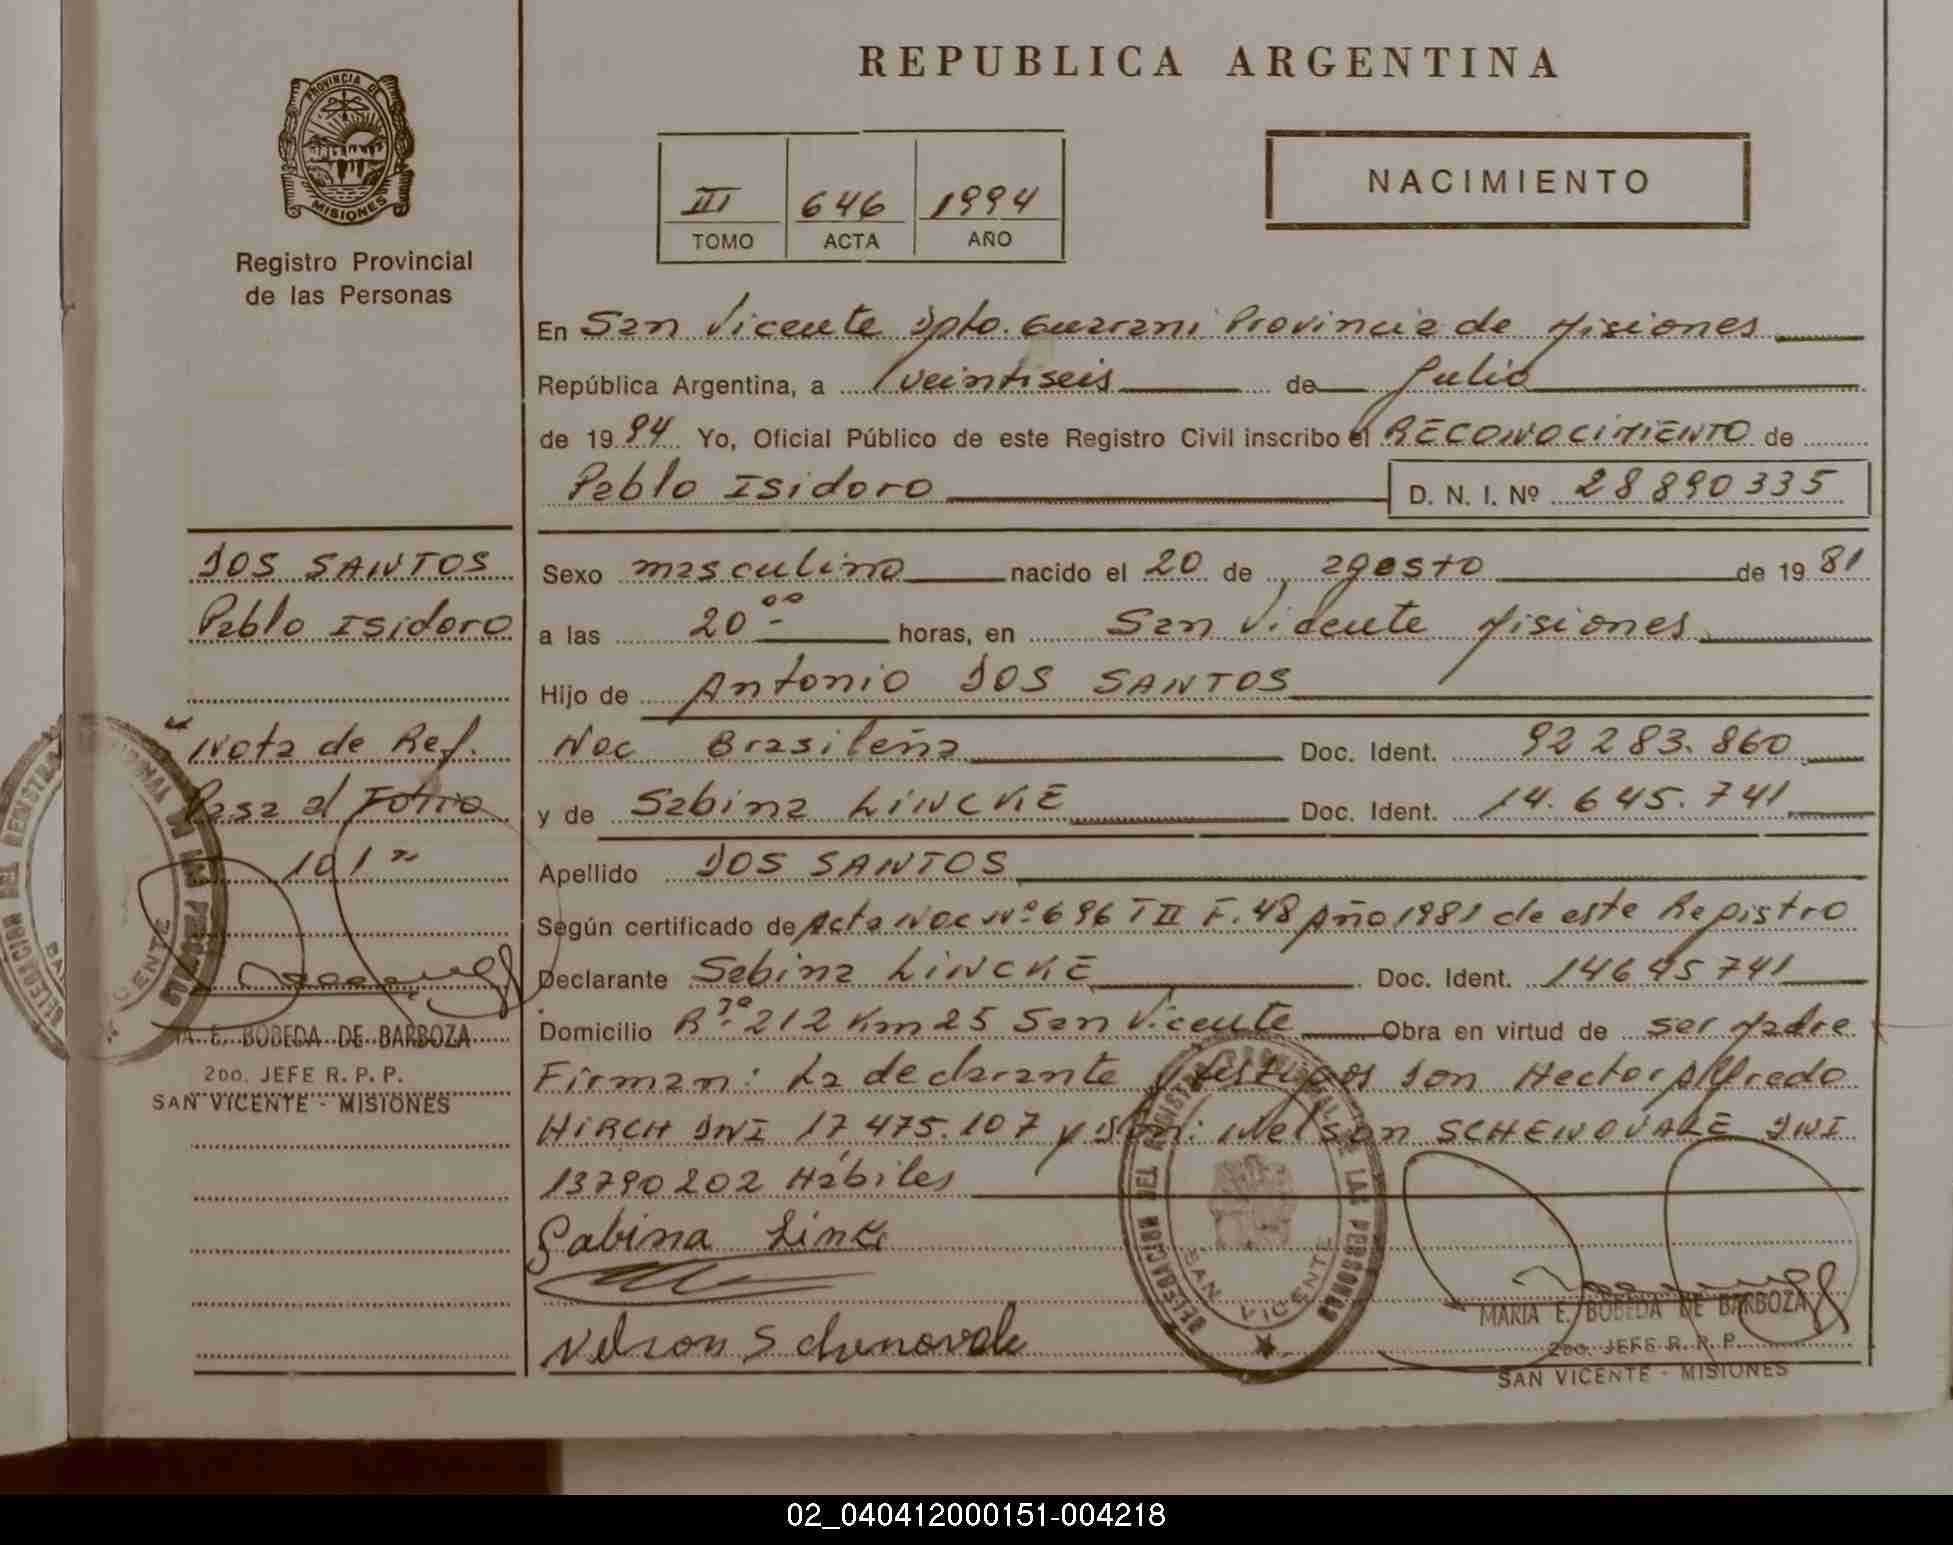 REPUBLICA ARGENTINA
PROVINCIA DE
MISIONES
Registro Provincial
de las Personas
III 646 1994
TOMO ACTA AÑO
NACIMIENTO
En San Vicente Dpto. Guarani Provincia de Misiones
República Argentina, a veintiseis de Julio
de 1994 Yo, Oficial Público de este Registro Civil inscribo el RECONOCIMIENTO de
Pablo Isidoro D. N. I. Nº 28890335
DOS SANTOS
Pablo Isidoro
"Nota de Ref.
Pasa al Folio
101"
Mª E. BOBEDA DE BARBOZA
2DO. JEFE R. P. P.
SAN VICENTE - MISIONES
Sexo masculino nacido el 20 de agosto de 1981
a las 20 00 horas, en San Vicente Misiones
Hijo de Antonio DOS SANTOS
Nac Brasileña Doc. Ident. 92283.860
y de Sabina LINCKE Doc. Ident. 14.645.741
Apellido DOS SANTOS
Según certificado de Acta Nac Nº 696 T II F. 48 Año 1981 de este Registro
Declarante Sabina LINCKE Doc. Ident. 14645741
Domicilio R 212 Km 25 San Vicente Obra en virtud de ser Madre
Firman: La declarante y testigos son Hector Alfredo
HIRCH DNI 17475.107 y Nelson SCHENOVALE DNI
13790202 Hábiles
Sabina Link
Nelson Schenovale
DELEGACION DEL REGISTRO PROVINCIAL DE LAS PERSONAS
SAN VICENTE
MARIA E. BOBEDA DE BARBOZA
2DO. JEFE R. P. P.
SAN VICENTE - MISIONES
02_040412000151-004218